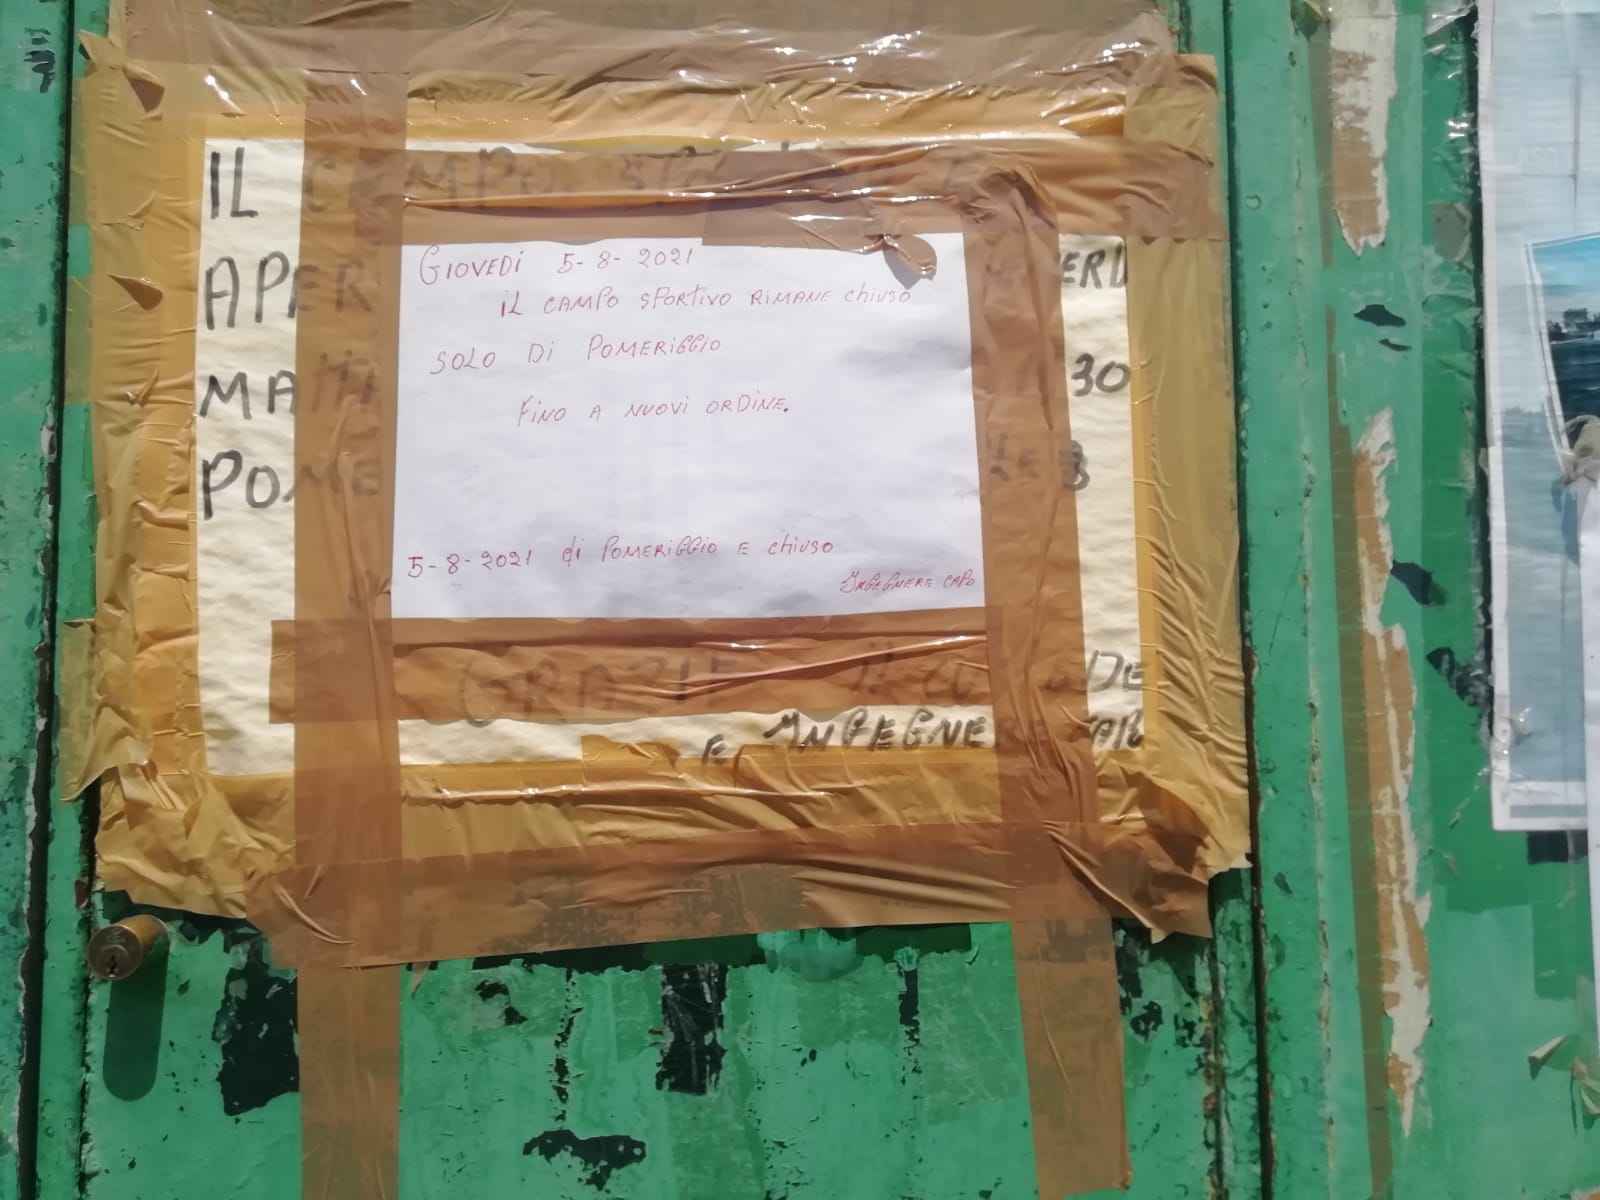 IL CAMPO
APER
MATTI
30
POME
GIOVEDI 5-8-2021
IL CAMPO SPORTIVO RIMANE chiuso
SOLO DI POMERIGGIO
FINO A NUOVI ORDINE.
5-8-2021 di POMERIGGIO E chiuso
INGEGNERE CAPO
GRAZIE IL
E INGEGNERE CAPO
ASD